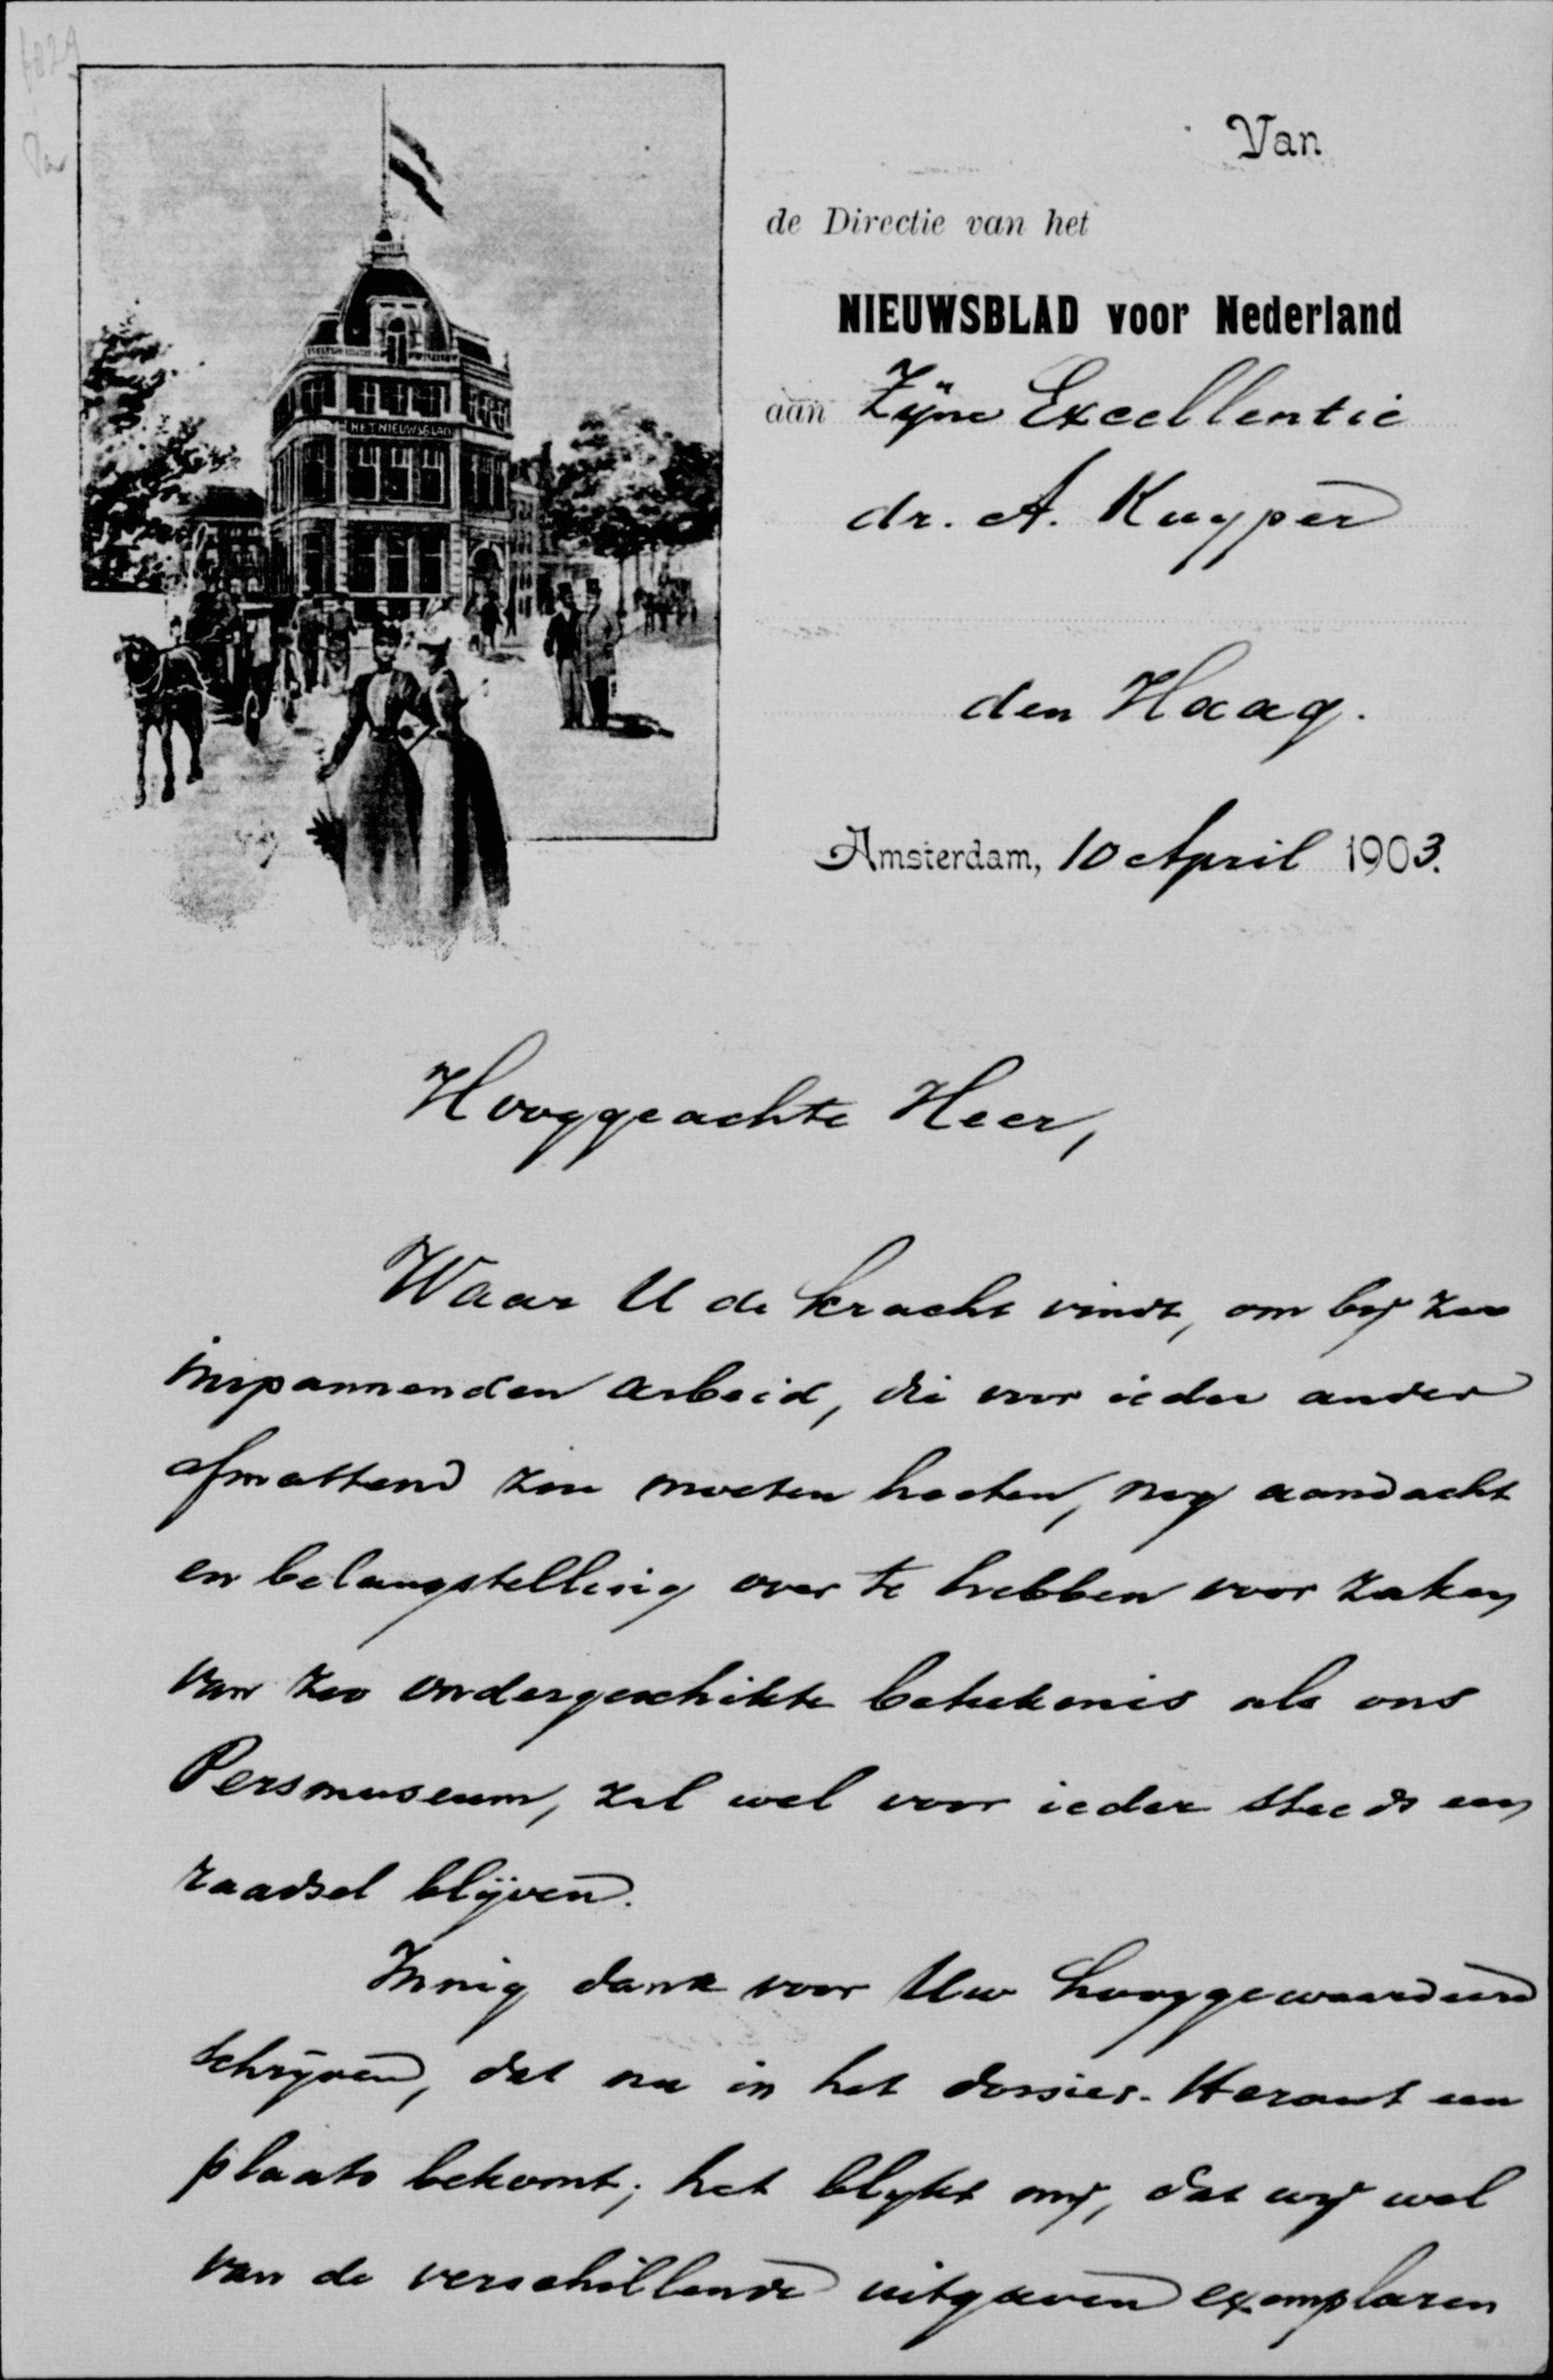 6029
Van
de Directie van het
NIEUWSBLAD voor Nederland
aan Zijne Excellentie
dr. A. Kuyper
den Haag.
Amsterdam, 10 April 1903.
HET NIEUWSBLAD
Hooggeachte Heer,
Waar U de kracht vindt, om bij zoo
inspannenden arbeid, die voor ieder ander
afmattend zou moeten heeten, nog aandacht
en belangstelling over te hebben voor zaken
van zoo ondergeschikte beteekenis als ons
Persmuseum, zal wel voor ieder steeds een
raadsel blijven.
Innig dank voor Uw hooggewaardeerd
schrijven, dat nu in het dossier-Heraut een
plaats bekomt; het blijkt mij, dat wij wel
van de verschillende uitgaven exemplaren